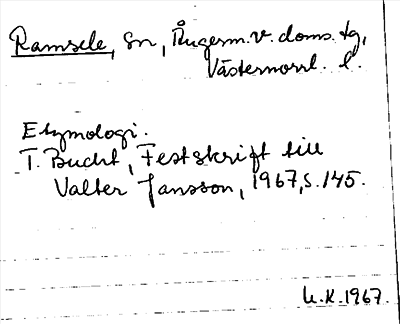 Ramsele, sn, Ångerm. v. doms. tg,
Västernorrl. l.
Etymologi.
T. Bucht, Festskrift till
Valter Jansson, 1967, s. 145.
U.K. 1967.